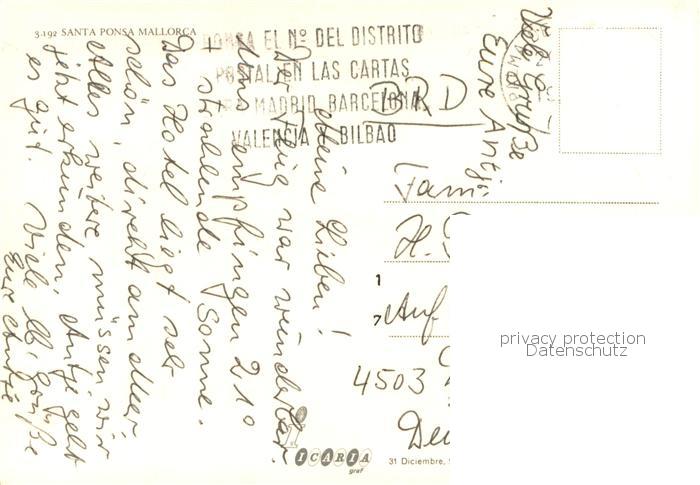 3-192 SANTA PONSA MALLORCA
PONGA EL Nº DEL DISTRITO
POSTAL EN LAS CARTAS
PARA MADRID, BARCELONA,
VALENCIA Y BILBAO
BRD
Meine Lieben!
Der Flug war wunderbar.
Uns empfingen 21°
+ strahlende Sonne.
Das Hotel liegt sehr
schön, direkt am Meer
Alles weitere müssen wir
jetzt erkunden. Antje geht
es gut. Viele lb. Grüße
Eure Antje
Viele Grüße
Eure Antje
Fam.
H.
Auf
4503
Deu
1
ICARIA
graf
31 Diciembre,
privacy protection
Datenschutz